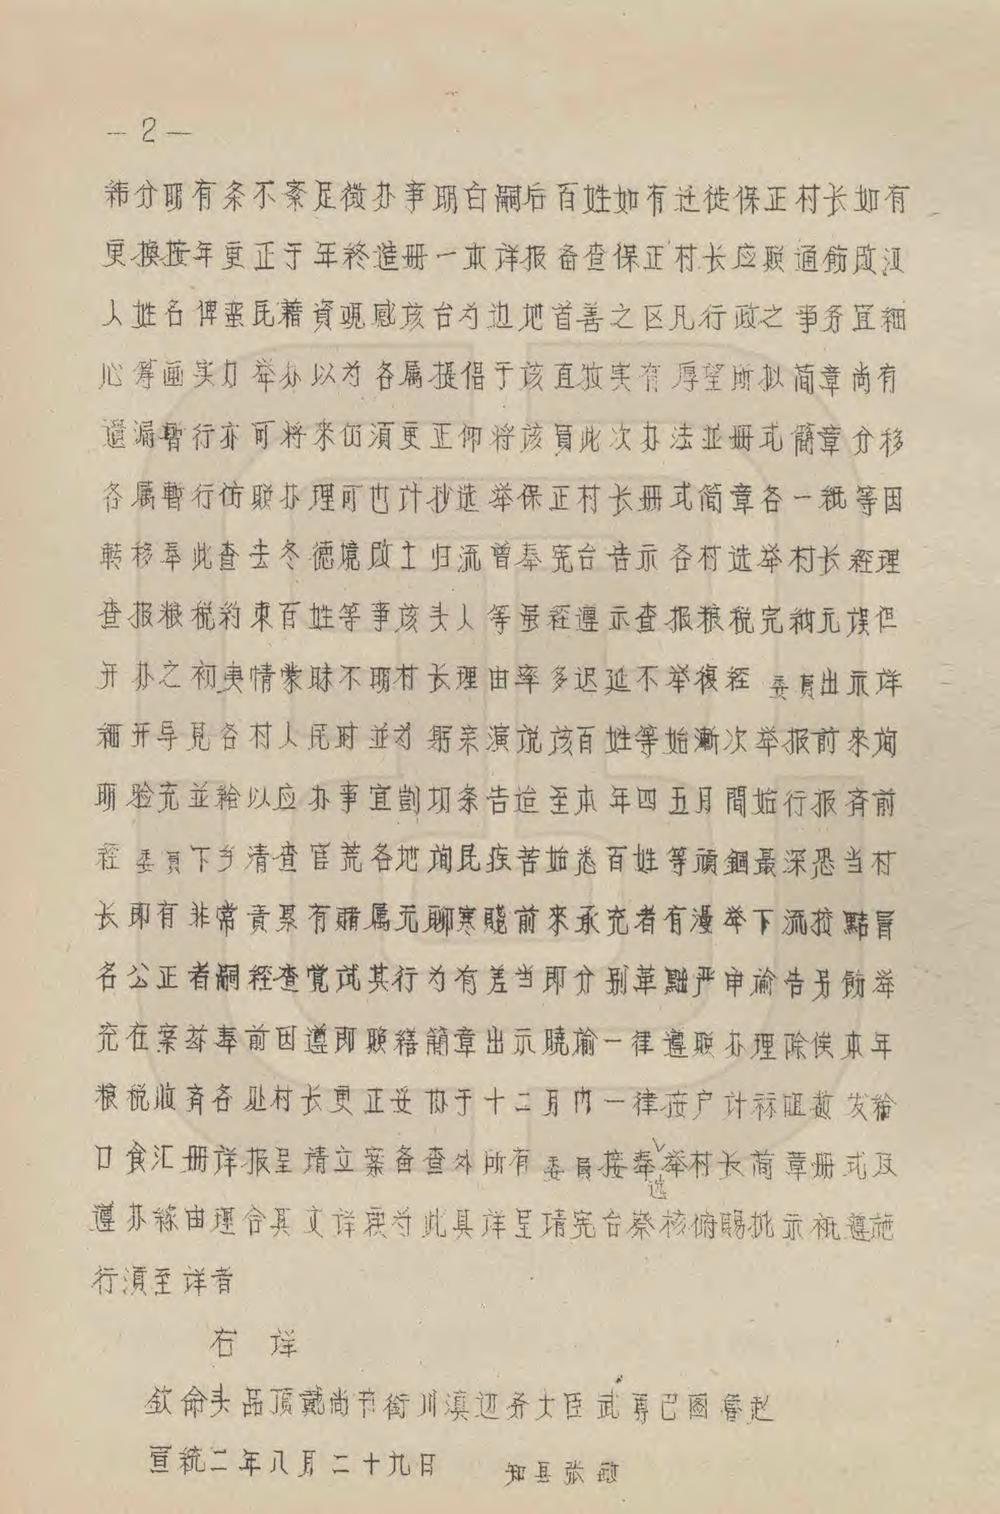 —2—
纬分明有条不紊足徵办事明白嗣后百姓如有迁徙保正村长如有
更换按年更正于年终造册一本详报备查保正村长应照通飭改汉
人姓名俾蛮民藉资观感该台为边地首善之区凡行政之事务宜细
心筹画实力举办以为各属提倡于该直牧实有厚望所拟简章尚有
遗漏暂行亦可将来仍须更正仰将该员此次办法並册式簡章分移
各属暫行仿照办理可也计抄选举保正村长册式简章各一紙等因
転移奉此查去冬德境改土归流曾奉宪台告示各村选举村长经理
查报粮税约束百姓等事该头人等虽经遵示查报粮税完納无误但
开办之初夷情蒙昧不明村长理由率多迟延不举復经委員出示详
细开导見各村人民时並为躬亲演说该百姓等始漸次举报前来询
明验充並给以应办事宜剴切条告迨至本年四五月間始行报齐前
经委員下乡清查官荒各地询民疾苦始悉百姓等頑錮最深恐当村
长即有非常責累有賭属无聊寒賤前來承充者有漫举下流狡黠冒
名公正者嗣经查觉或其行为有差当即分别革黜严申諭告另飭举
充在案茲奉前因遵即照繕簡章出示曉諭一律遵照办理除俟本年
粮税收齐各处村长更正妥协于十二月内一律按户计 发給
口食汇册详报呈請立案备查外所有委員接奉选举村长简章册式及
遵办缘由理合具文详 为此具详呈請宪台察核俯賜批示祗遵施
行須至详者
右 详
钦命头品頂戴尚书衔川滇边务大臣武勇巴图鲁赵
宣統二年八月二十九日 知县张